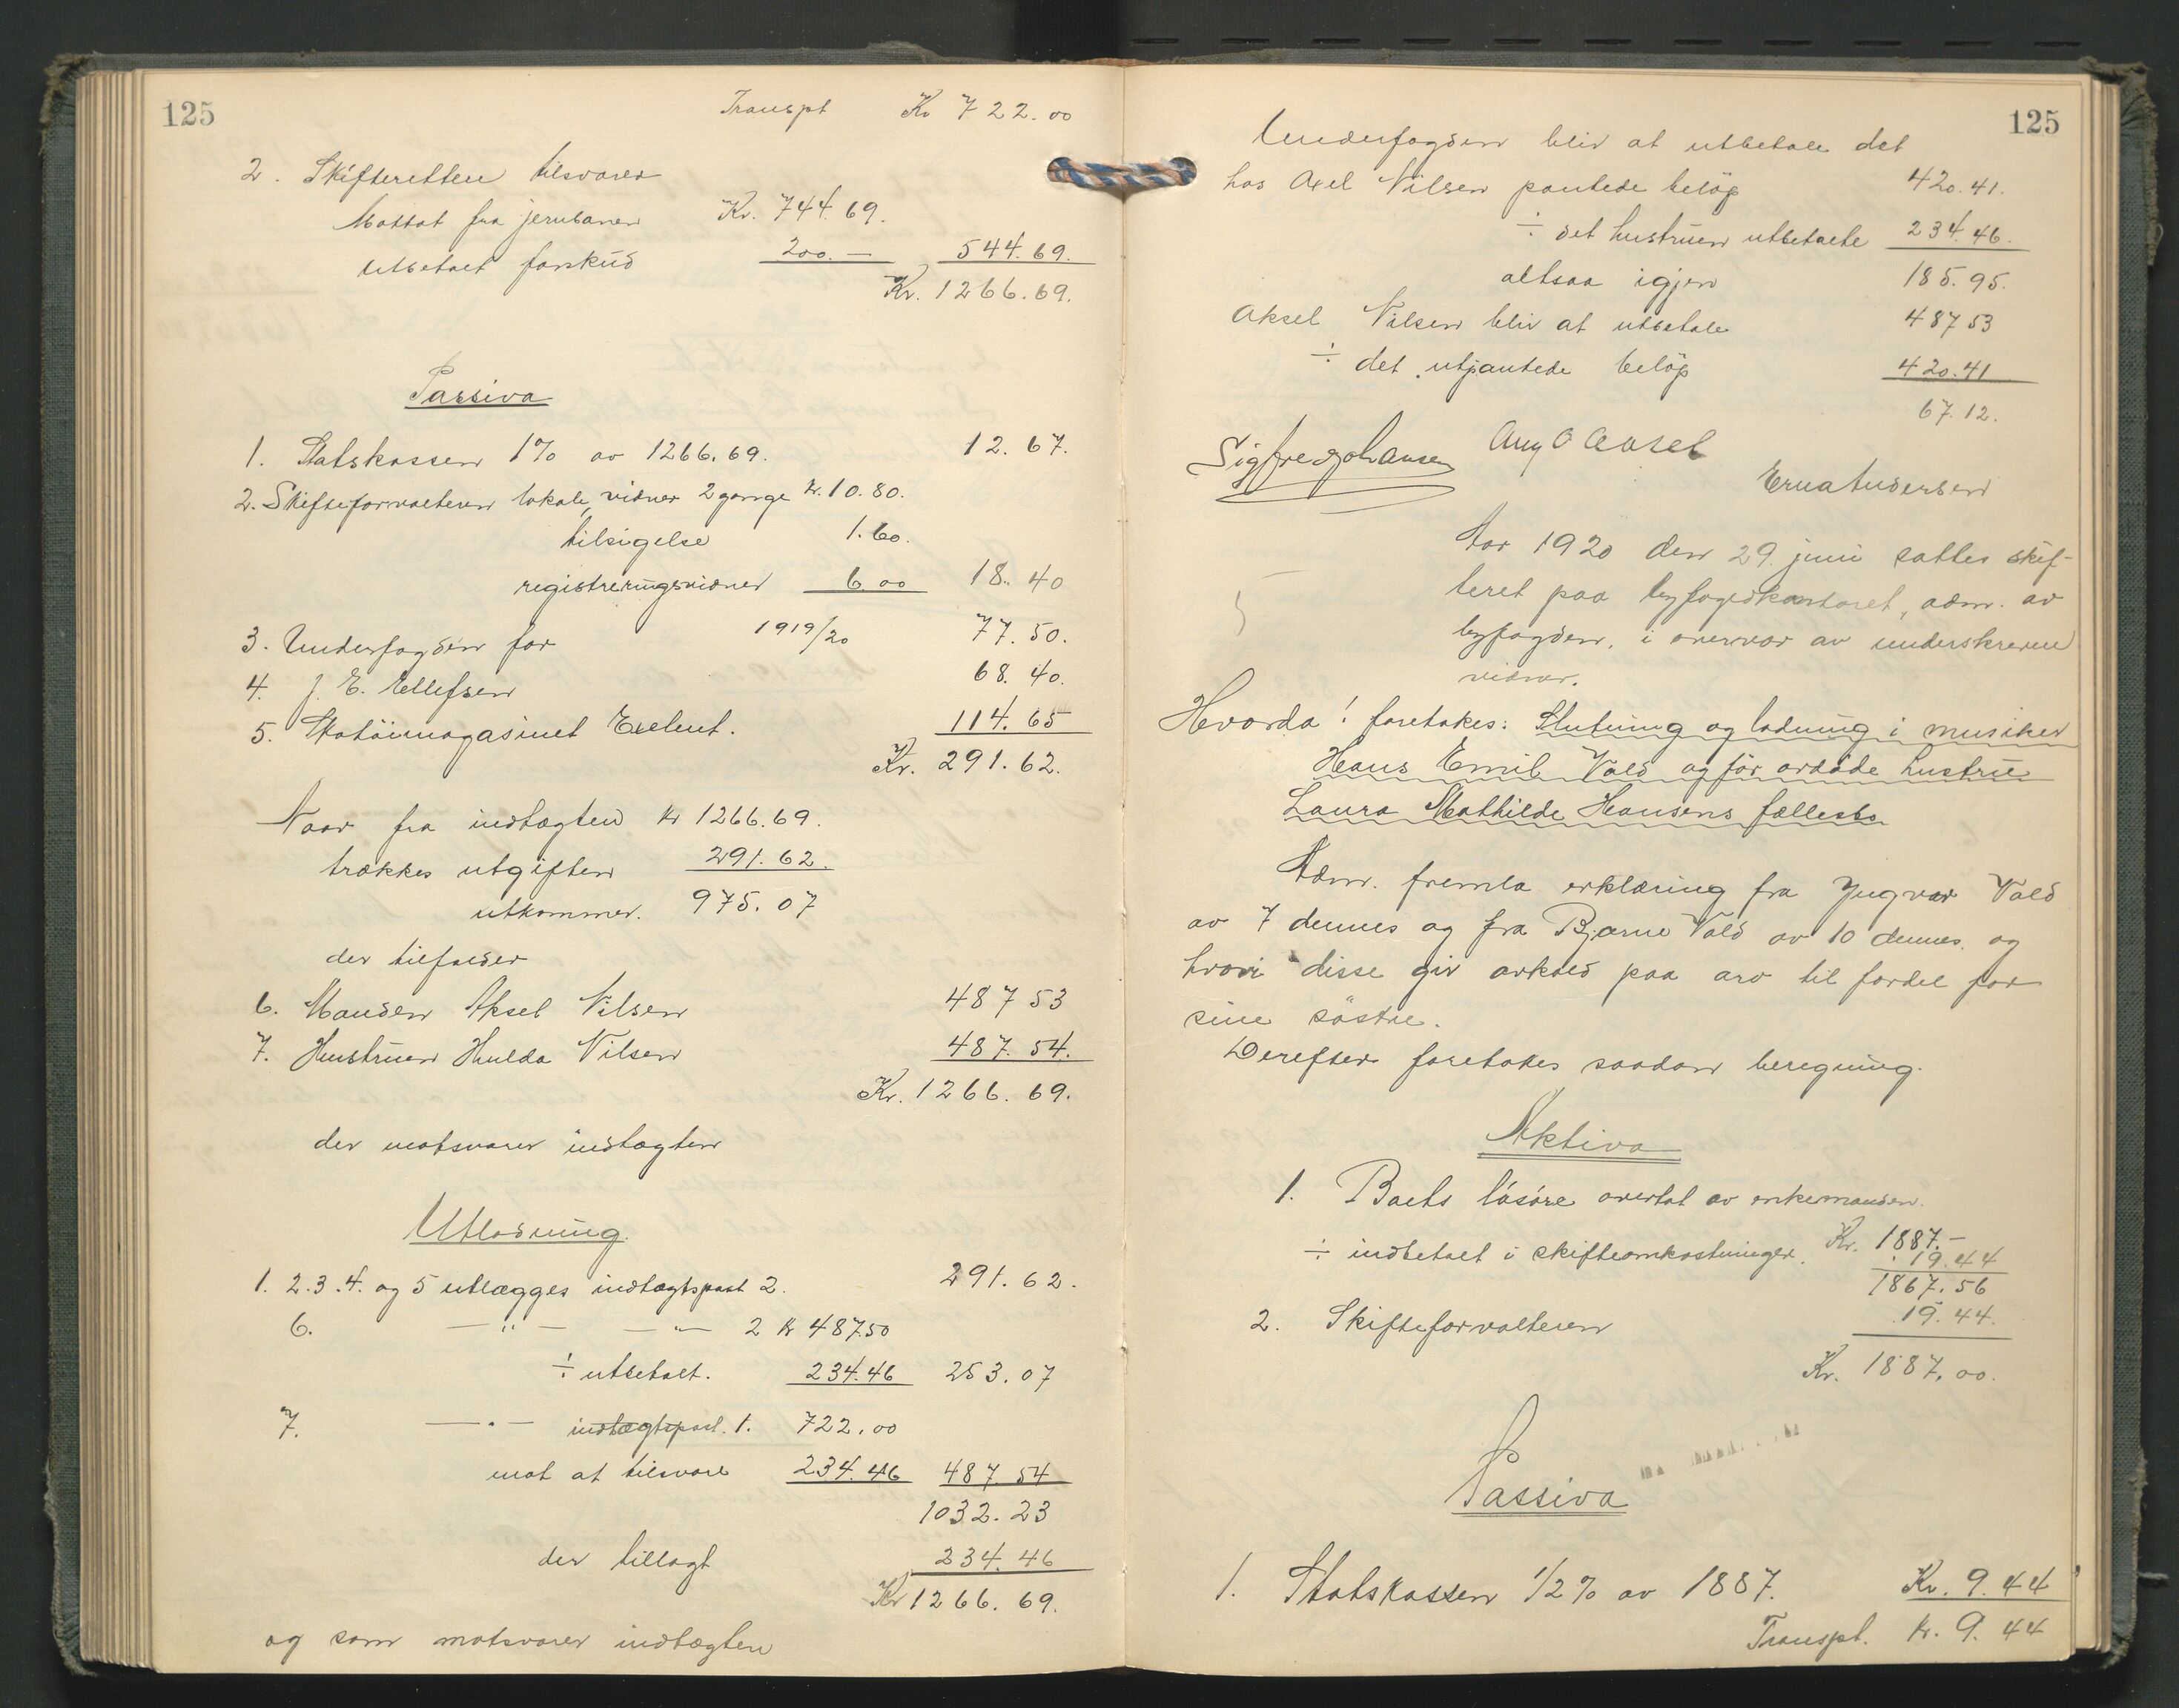 125
Transpt Kr 722.00
2. Skifteretten tilsvarer
Mottat fra jernbanen Kr. 744.69.
utbetalt forskud 200.— 544.69.
Kr. 1266.69.
Passiva
1. Statskassen 1% av 1266.69. 12.67.
2. Skifteforvalteren lokale, vidner 2 gange Kr. 10.80.
tilsigelse 1.60.
registreringsvidner 6.00 18.40
3. Underfogden for 1919/20 77.50.
4. J. E. Ellefsen 68.40.
5. Skotöimagasinet Exelent. 114.65
Kr. 291.62.
Naar fra indtægten Kr 1266.69.
trækkes utgiften 291.62.
utkommer. 975.07
der tilfalder
6. Manden Aksel Nilsen 487 53
7. Hustruen Hulda Nilsen 487.54.
Kr. 1266.69.
der motsvarer indtægten
Utlodning.
1. 2. 3. 4. og 5 utlægges indtægtspost 2. 291.62.
6. —„— —„— 2 Kr 487.50
÷ utbetalt. 234.46 253.07
7. —„— indtægtspost. 1. 722.00
mot at tilsvare 234.46 487.54
1032.23
der tillagt 234.46
Kr 1266.69.
og som motsvarer indtægten
125
Underfogden blir at utbetale det
hos Axel Nilsen pantede beløp 420.41.
÷ det hustruen utbetalte 234.46.
altsaa igjen 185.95.
Aksel Nilsen blir at utbetale 487 53
÷ det utpantede beløp 420.41
67.12.
Sigfred Johansen Aug O Aasel
Erna Andersen
Aar 1920 den 29. juni sattes skif-
teret paa byfogedkontoret, adm. av
byfogden, i overvær av underskrevne
vidner.
Hvorda! foretokes: Slutning og lodning i musiker
Hans Emil Vold og før avdøde hustru
Laura Mathilde Hansens fællesbo
Adm. fremla erklæring fra Yngvar Vold
av 7 dennes og fra Bjarne Vold av 10 dennes. og
hvori disse gir avkald paa arv til fordel for
sine søstre.
Derefter foretokes saadan beregning.
Aktiva
1. Boets løsøre overtat av enkemanden.
Kr. 1887.—
÷ indbetalt i skifteomkostninger. 19.44
1867.56
2. Skifteforvalteren 19.44.
Kr. 1887.00.
Passiva
1. Statskassen 1/2% av 1887. Kr. 9.44
Transpt. Kr. 9.44